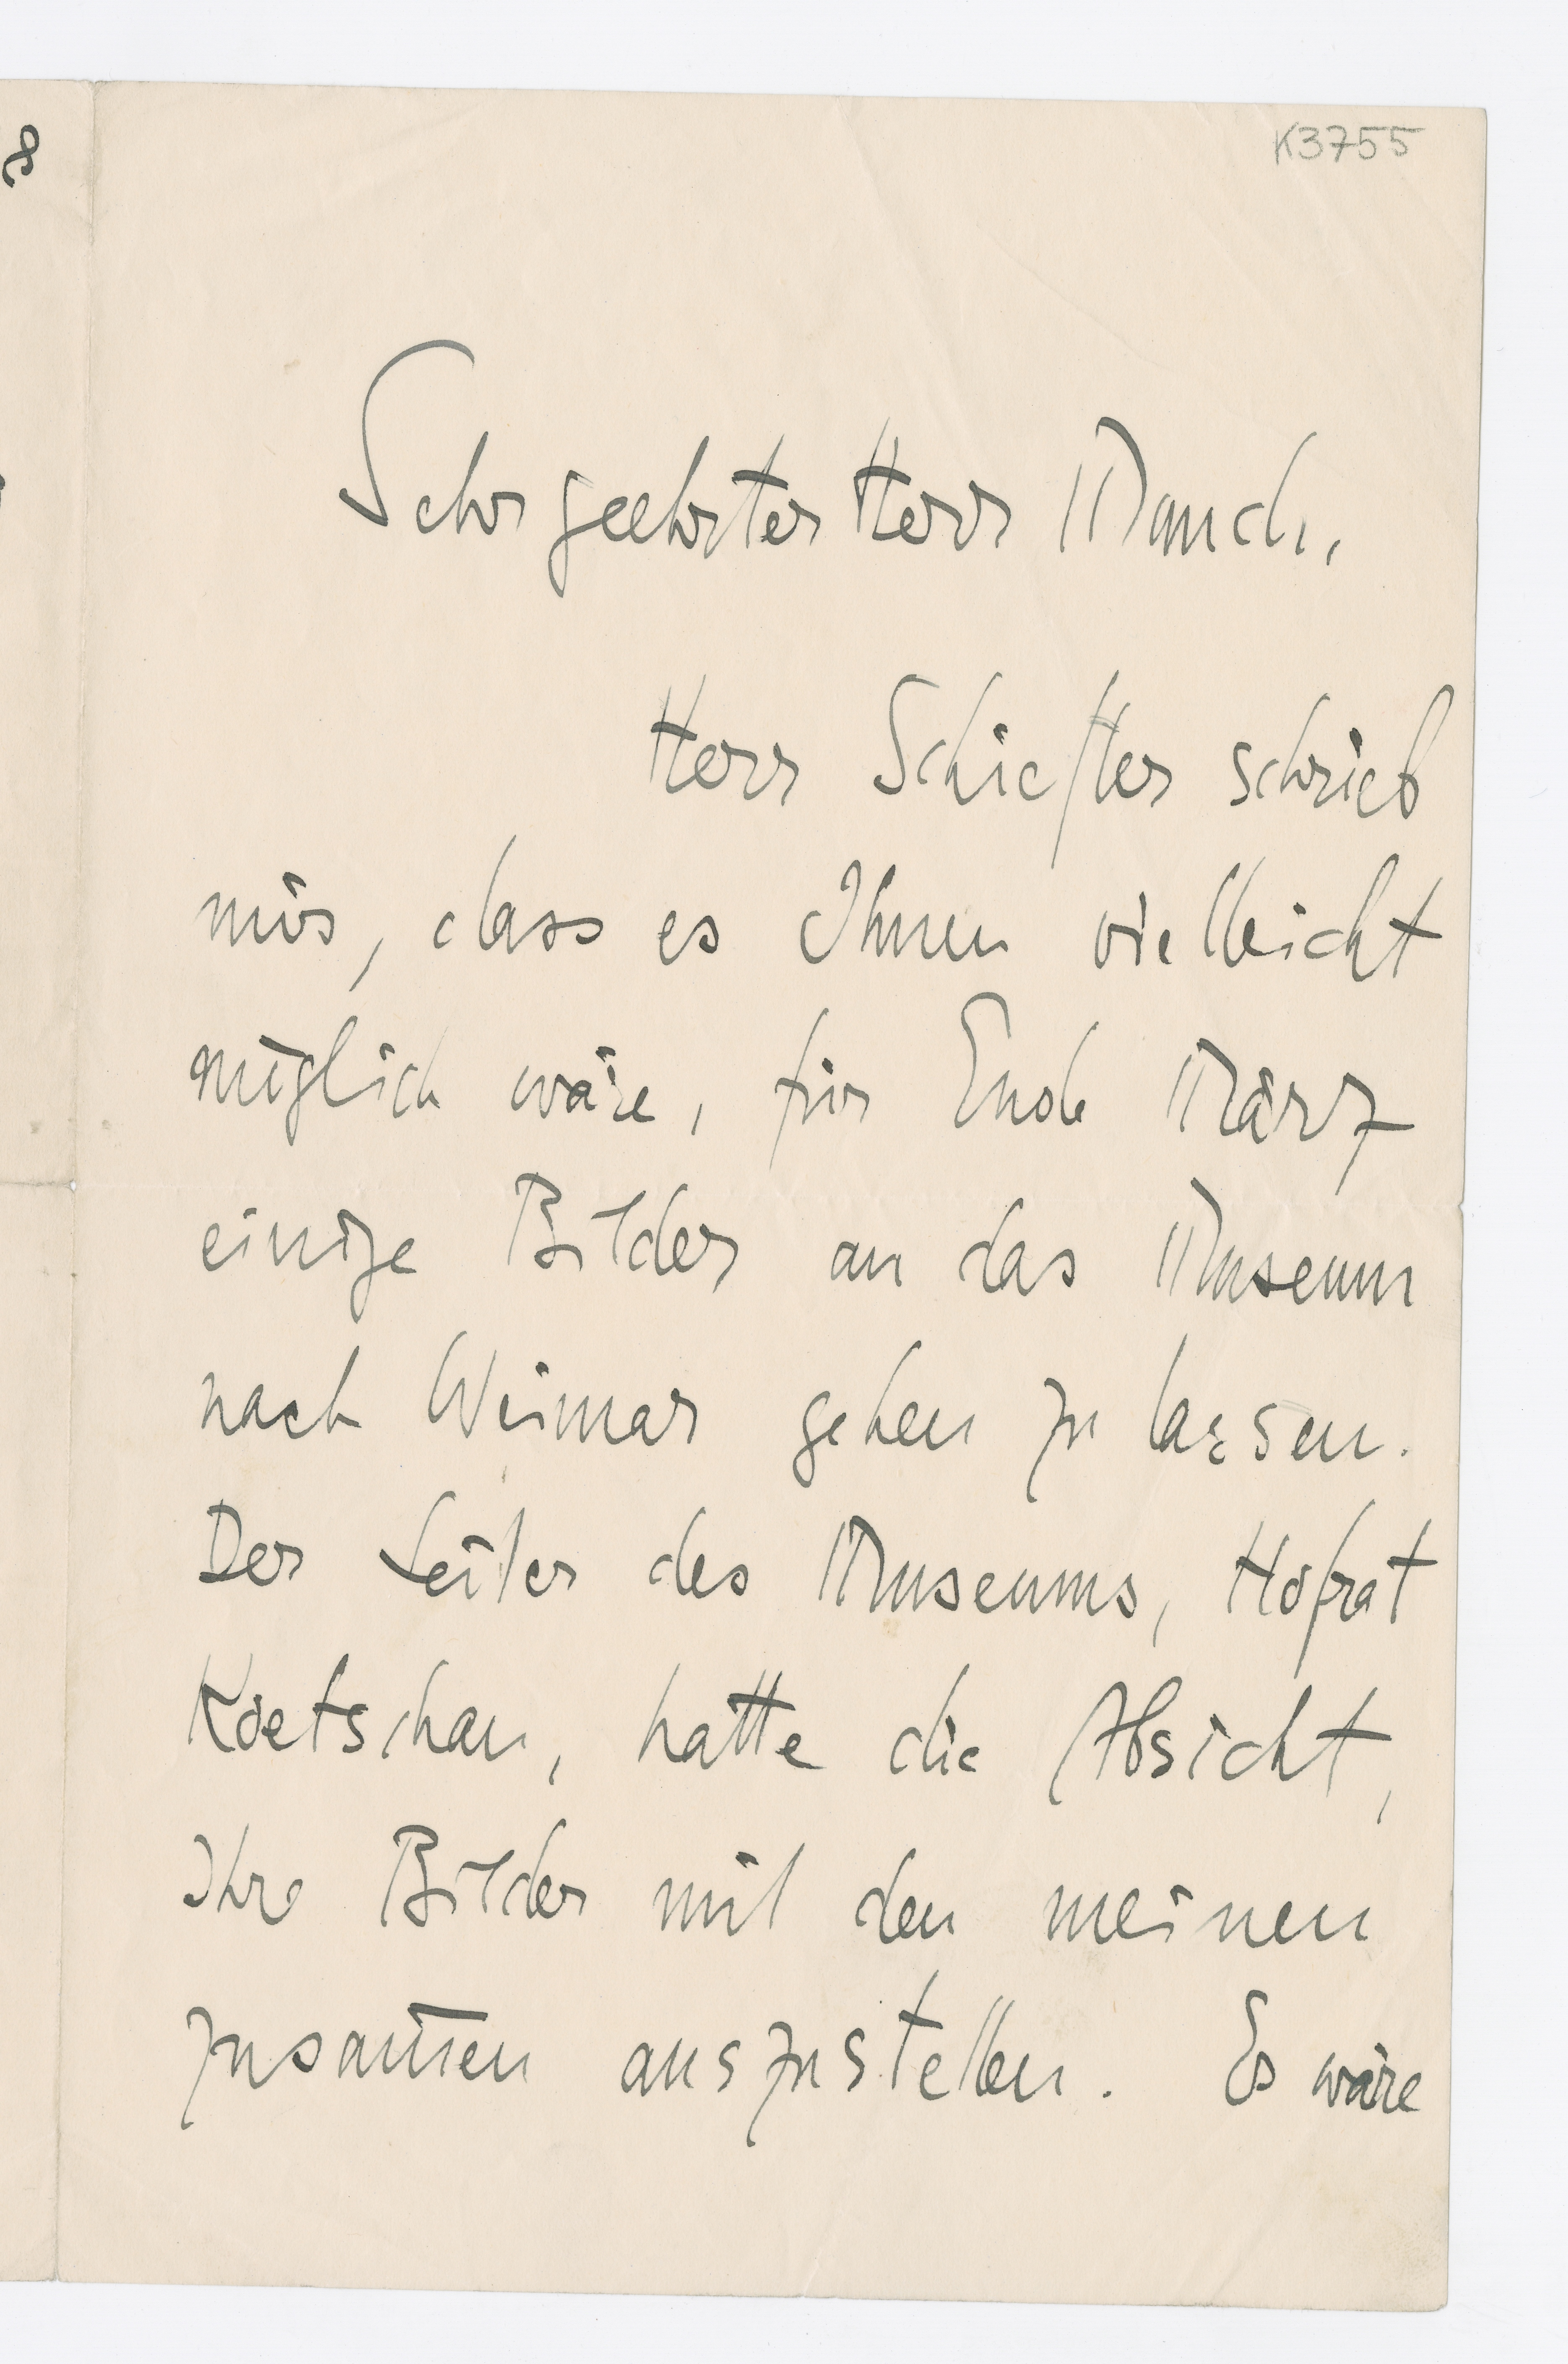 8
K3755
Sehr geehrter Herr Munch,
Herr Schiefler schrieb
mir, dass es Ihnen vielleicht
möglich wäre, für Ende März
einige Bilder an das Museum
nach Weimar gehen zu lassen.
Der Leiter des Museums, Hofrat
Koetschau, hatte die Absicht,
Ihre Bilder mit den meinen
zusam̅en auszustellen. Es wäre